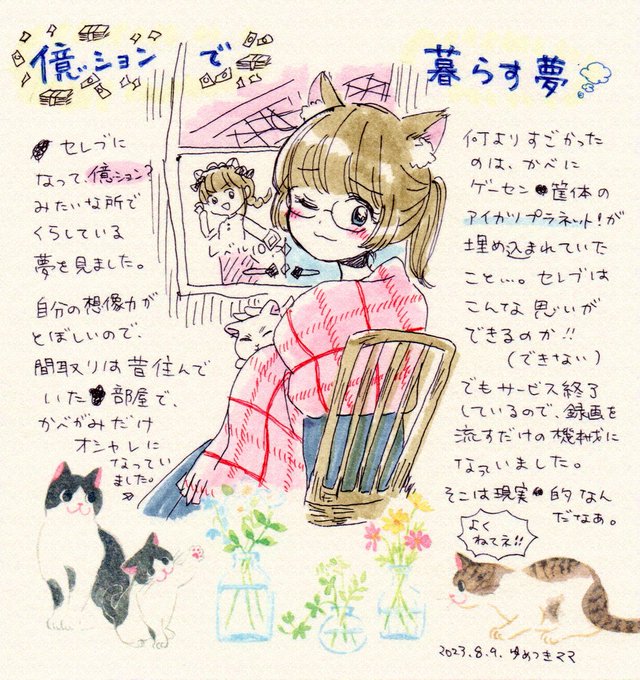 億ションで暮らす夢
セレブに
なって、億ション?
みたいな所で
くらしている
夢を見ました。
自分の想像力が
とぼしいので、
間取りは昔住んで
いた部屋で、
かべがみだけ
オシャレに
なってい
ました。
何よりすごかった
のは、かべに
ゲーセン筐体の
アイカツプラネット!が
埋め込まれていた
こと…。セレブは
こんな思いが
できるのか!!
(できない)
でもサービス終了
しているので、録画を
流すだけの機械に
なっていました。
そこは現実的なん
だなぁ。
よく
ねてネ!!
2023.8.9. ゆめつきママ